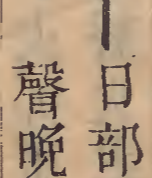 日部
聲晚